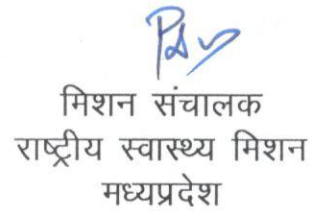 मिशन संचालक
राष्ट्रीय स्वास्थ्य मिशन
मध्यप्रदेश